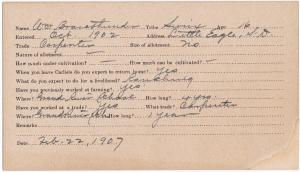 Name Wm Bravethunder Tribe Sioux Age 16
Entered Oct 1902 Address Little Eagle, S.D.
Trade Carpenter Size of allotment? No
Nature of allotment? —
How much under cultivation? — How much can be cultivated? —
When you leave Carlisle do you expect to return home? Yes
What do you expect to do for a livelihood? Ranching
Have you previously worked at farming? Yes
Where? Grand River School How long? 4 yrs.
Have you worked at a trade? Yes What trade? Carpenter
Where? Grand River School How long? 1 year
Remarks
Date, Feb. 22, 1907